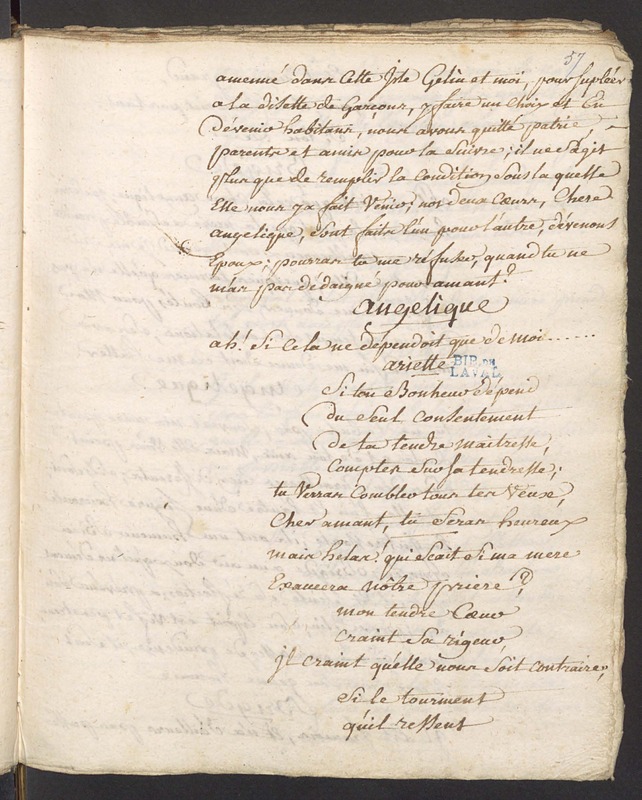 57
amenné dans Cette Jsle Gelin et moi, pour supléer
a la disette de Garçons, y faire un Choix et En
dévenir habitans, nous avons quitté patrie,
parents et amis pour la suivre; il ne s'agit
plus que de remplir la Condition sous la quelle
Elle nous ya fait Venir; nos deux Cœurs, Chere
angelique, sont faits l'un pour l'autre, dévenons
Epoux; pourras tu me refuser, quand tu ne
m'as pas dédaigné pour amant?
angelique
ah! si cela ne dépendoit que de moi......
ariette
BIB. DE
LAVAL
Si ton Bonheur dépend
du seul consentement
de ta tendre maitresse,
Comptes sur sa tendresse;
tu Verras Combler tous tes Vœux,
Cher amant, tu seras heureux
mais helas! qui scait si ma mere
Exaucera nôtre priere?
mon tendre Cœur
craint sa rigeur,
jl craint qu'elle nous soit contraire,
si le tourment
qu'il ressent